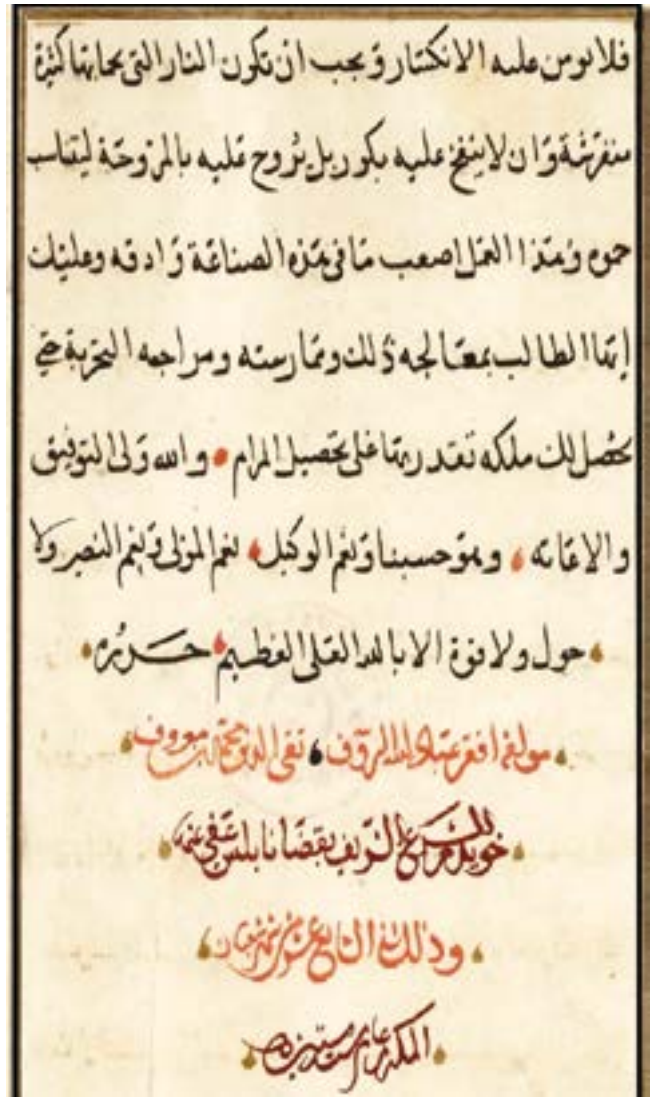 فلا يومن عليه الانكسار ويجب ان تكون النار التى بحمايتها كثيرة
منفرشة وان لا ينفخ عليه بكور بل يروح عليه بالمروحة ليقاسب
حموه وهذا العمل اصعب ما فى هذه الصناعة وادقه وعليك
ايها الطالب بمعالجه ذلك وممارسته ومراجعه التجربة حتي
يحصل لك ملكه تقتدر بها على تحصيل المرام والله ولى التوفيق
والاعانه وهو حسبنا ونعم الوكيل نعم المولى ونعم النصير ولا
حول ولا قوة الا بالله العلى العظيم حرره
مولفه افقر عباد الله الروف تقى الدين محمد بن معروف
الشرع الشريف بقضا نابلس عفى عنه
وذلك فى عشر من شهر شعبان
المكرم عام